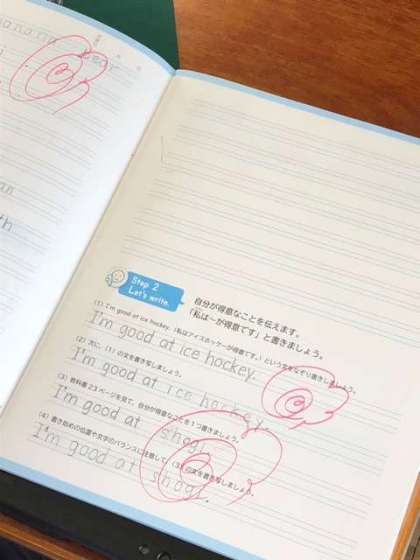 an
th
Step 2
Let's write.
自分が得意なことを伝えます。
「私は〜が得意です」と書きましょう。
(1) I'm good at ice hockey.（私はアイスホッケーが得意です。）という文をなぞり書きしましょう。
I'm good at ice hockey.
(2) 次に、(1)の文を書き写しましょう。
I'm good at ice hockey.
(3) 教科書23ページを見て、自分が得意なことを1つ書きましょう。
I'm good at shogi.
(4) 書き始めの位置や文字のバランスに注意して、(3)の文を書き写しましょう。
I'm good at shogi.